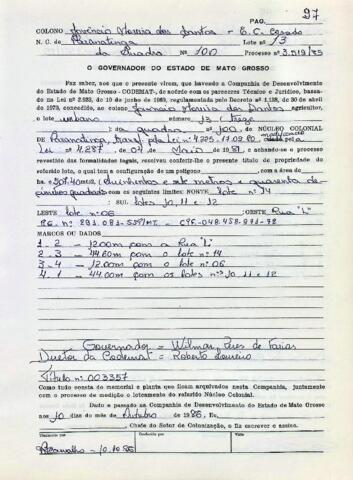 PAG. 27
COLONO Juvêncio Maria dos Santos - E. C. Casado
N. C. de Paranatinga Lote nº 13
da Quadra Nº 100 Processo nº 3.519/85
O GOVERNADOR DO ESTADO DE MATO GROSSO
Faz saber, aos que o presente virem, que havendo a Companhia de Desenvolvimento
do Estado de Mato Grosso - CODEMAT-, de acôrdo com os pareceres Técnico e Jurídico, basea-
do na Lei nº 2.923, de 10 de junho de 1969, regulamentada pelo Decreto nº 1.138, de 30 de abril
de 1970, concedido, ao colono Juvêncio Maria dos Santos agricultor,
o lote urbano nº 13 (treze
da quadra nº 100, DE NÚCLEO COLONIAL
DE Paranatinga, transf. pela Lei nº 4.225, 17.09.80 modificado
Lei nº 4.287 de 04 de Maio de 1981, e achando-se o processo
revestido das formalidades legais, resolveu conferir-lhe o presente título de propriedade do
referido lote, o qual tem a configuração de um polígono , com a área de
ha 507,40m² (quinhentos e sete metros e quarenta de-
címetros quadrados com os seguintes limites: NORTE lote nº 14
: SUL lotes 10, 11 e 12
LESTE lote nº 06 : OESTE Rua "L"
MARCOS OU DADOS
1 - 2 - 12.00m com a Rua "L"
2 - 3 - 44.60m com o lote nº 14
3 - 4 - 12.00m com o lote nº 06
4 - 1 - 44.00m com os lotes nºs 10, 11 e 12
Governador = Wilmar Peres de Farias
Diretor da Codemat = Roberto Loureiro
Título nº 003357
Como tudo consta do memorial e planta que ficam arquivados nesta Companhia, juntamente
com o processo de medição e loteamento do referido Núcleo Colonial.
Dado e passado na Companhia de Desenvolvimento do Estado de Mato Grosso
aos 10 dias do mês de Outubro de 1986, Eu,
Chefe do Setor de Colonização, o fiz escrever e assino.
Visto
RCarvalho - 10.10.86